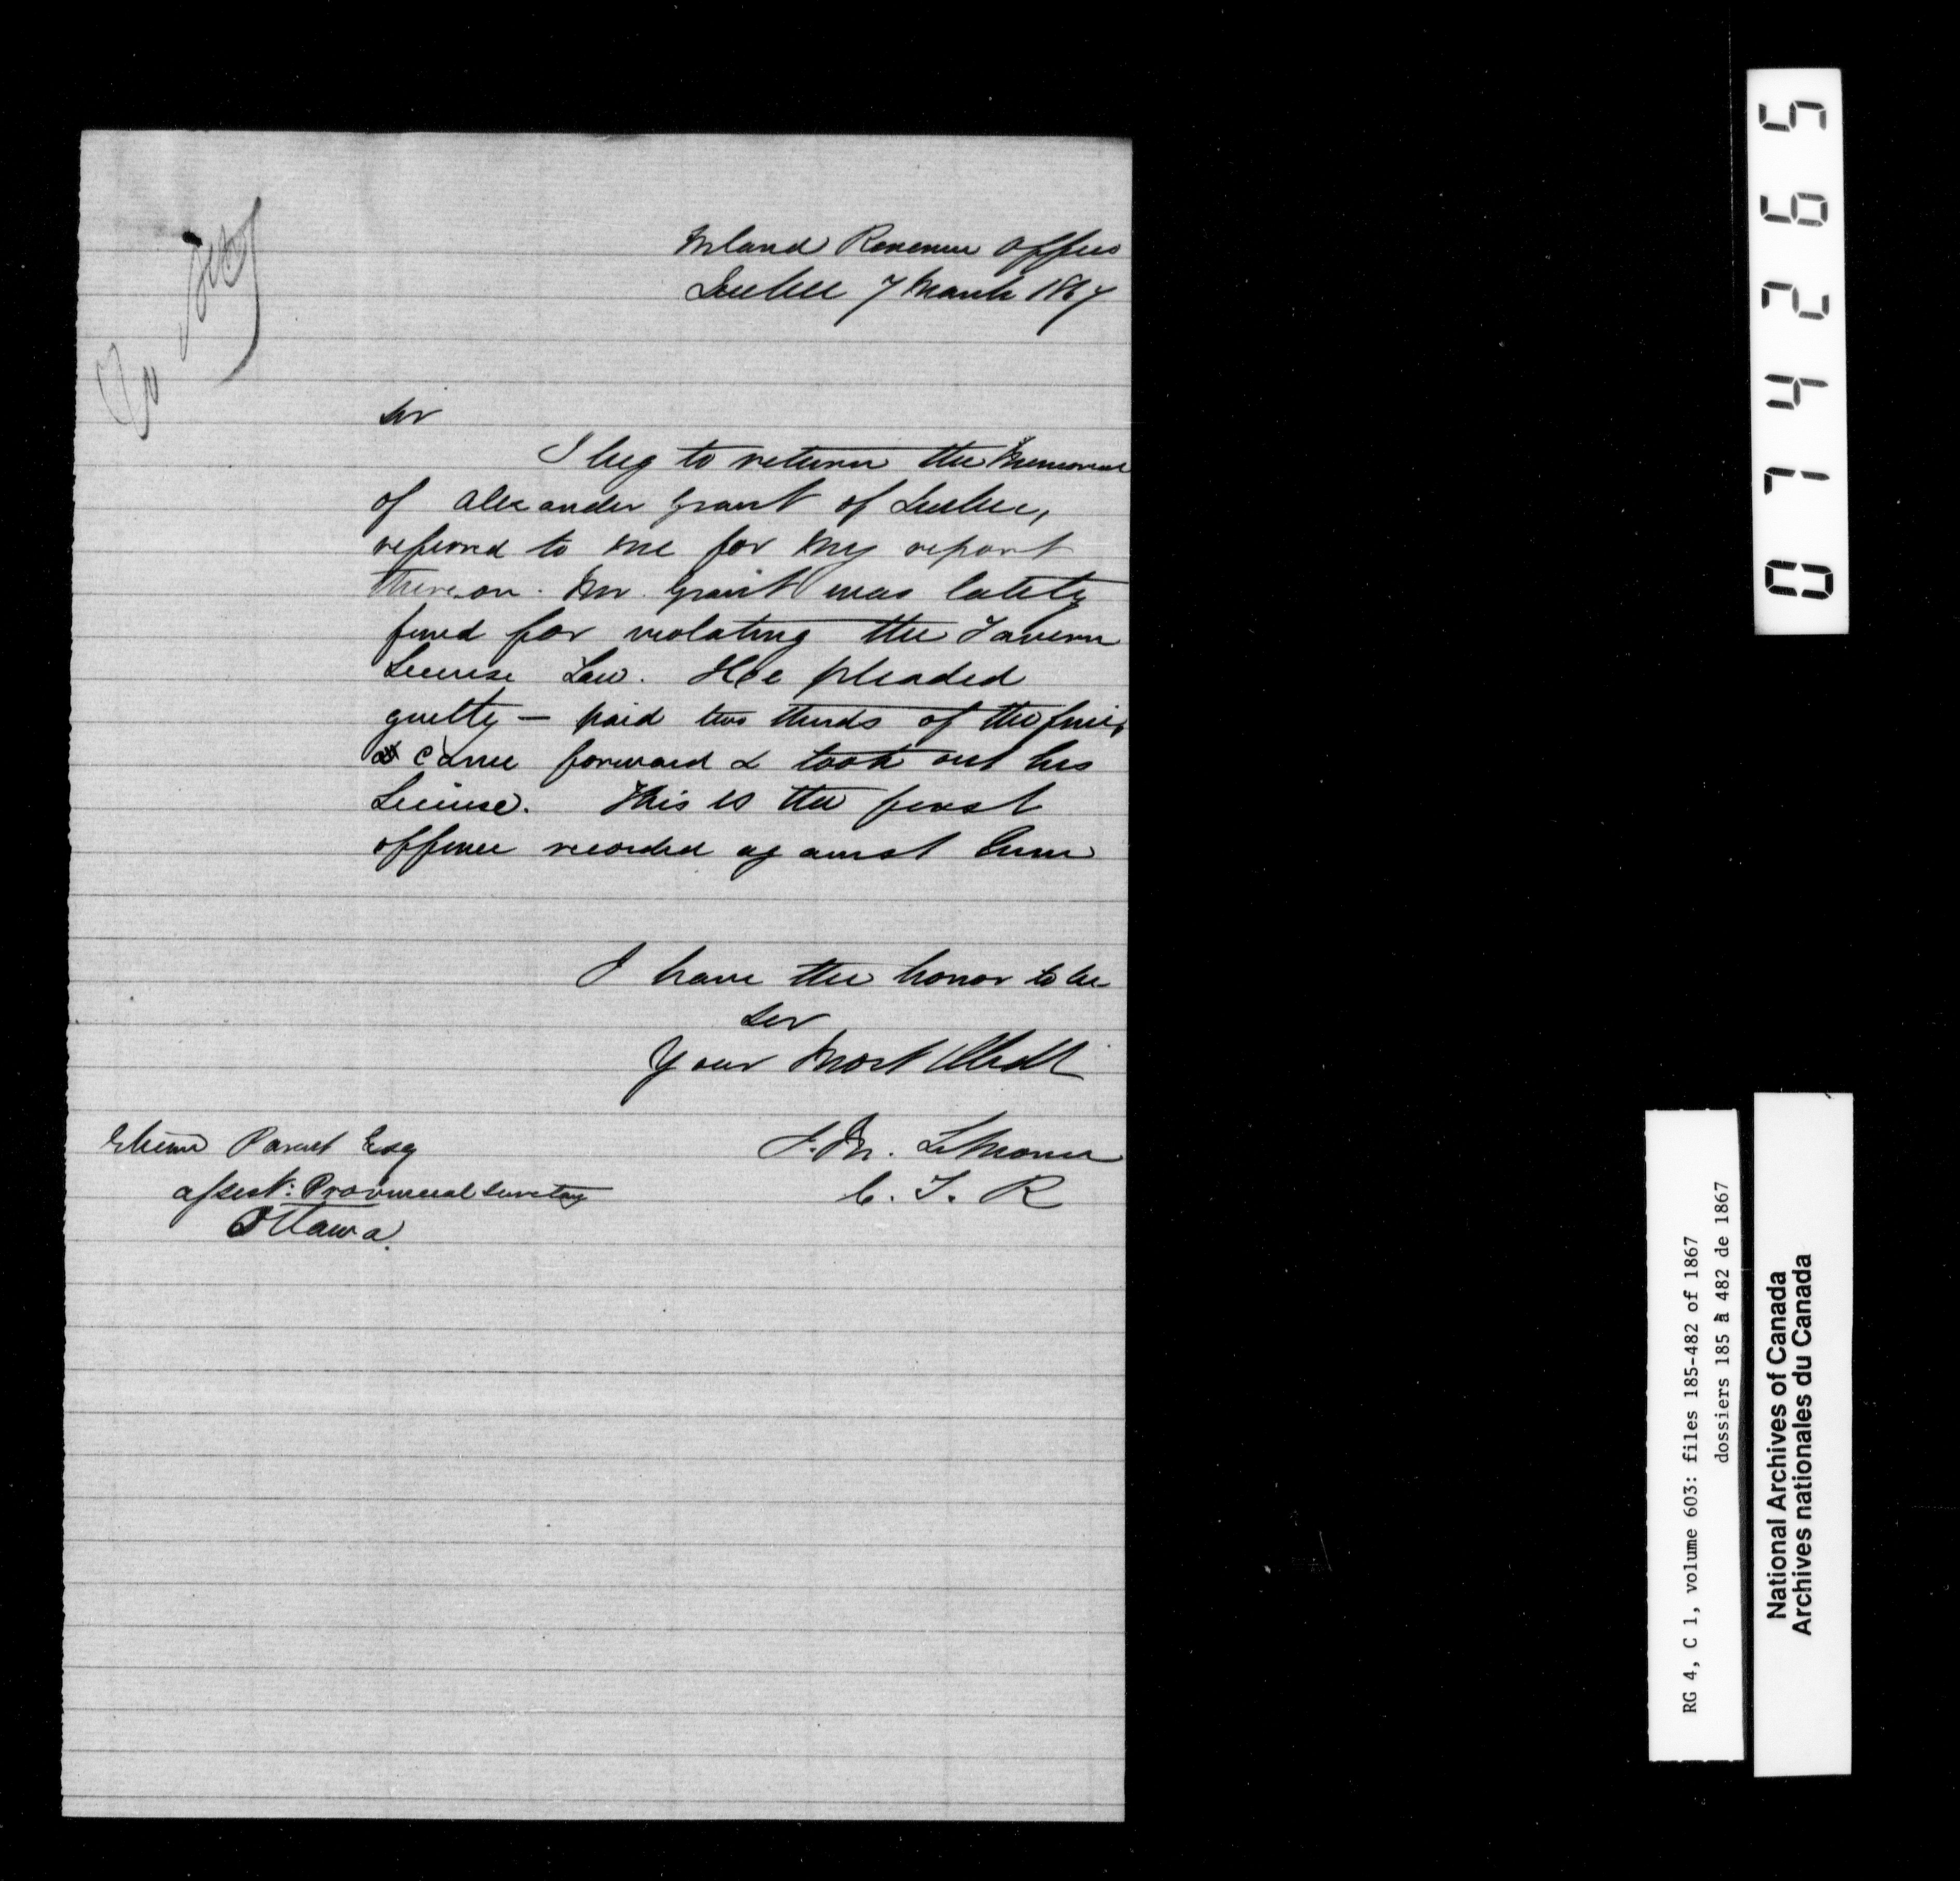 Inland Revenue Office
Quebec 7 March 1867
Sir
I beg to return the Memorial
of Alexander Grant of Quebec,
referred to me for my report
thereon. Mr. Grant was lately
fined for violating the Tavern
License Law. He pleaded
guilty — paid two thirds of the fine,
& came forward & took out his
License. This is the first
offence recorded against him
I have the honor to be
Sir
Your Most Obedt
J. M. LeMoine
C. I. R
Etienne Parent Esq
Assist: Provincial Secretary
Ottawa.
074265
RG 4, C 1, volume 603: files 185-482 of 1867
dossiers 185 à 482 de 1867
National Archives of Canada
Archives nationales du Canada